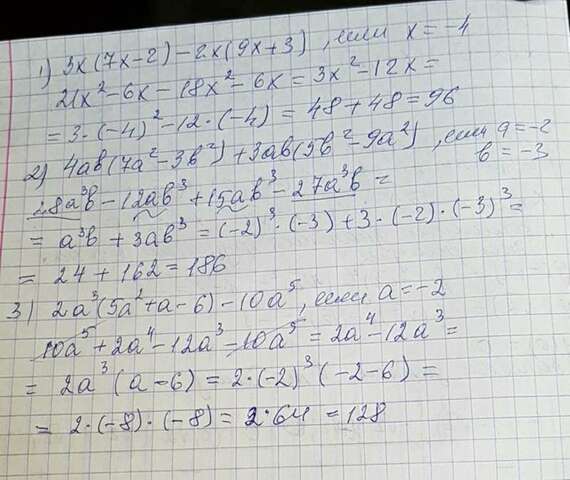 1) 3x(7x-2)-2x(9x+3), если x=-4
21x²-6x-18x²-6x=3x²-12x=
=3·(-4)²-12·(-4)=48+48=96
2) 4ab(7a²-3b²)+3ab(5b²-9a²), если a=-2
b=-3
28a³b-12ab³+15ab³-27a³b=
=a³b+3ab³=(-2)³·(-3)+3·(-2)·(-3)³=
=24+162=186
3) 2a³(5a²+a-6)-10a⁵, если a=-2
10a⁵+2a⁴-12a³-10a⁵=2a⁴-12a³=
=2a³(a-6)=2·(-2)³(-2-6)=
=2·(-8)·(-8)=2·64=128